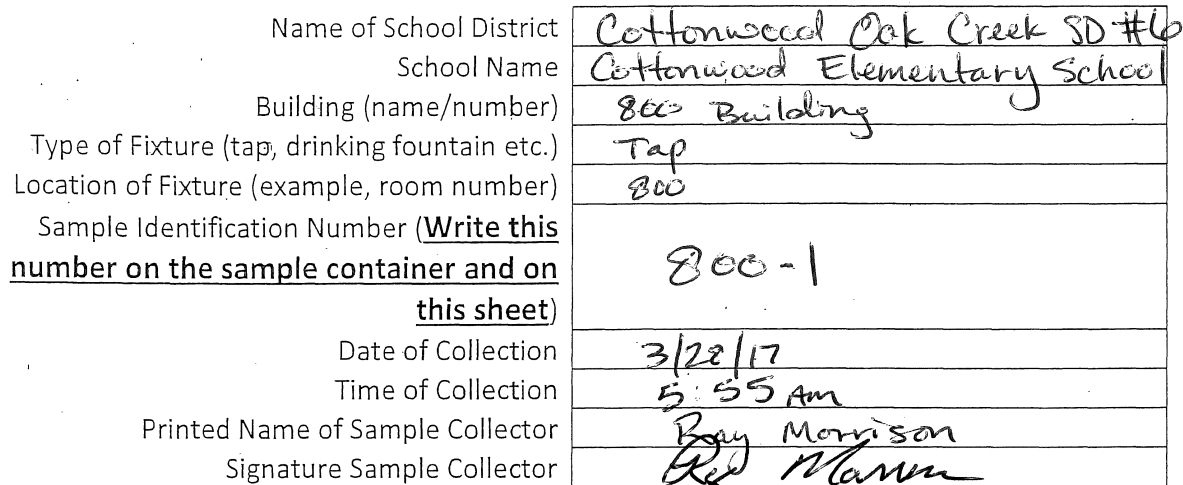 Name of School District Cottonwood Oak Creek SD #6
School Name Cottonwood Elementary School
Building (name/number) 800 Building
Type of Fixture (tap, drinking fountain etc.) Tap
Location of Fixture (example, room number) 800
Sample Identification Number (Write this
number on the sample container and on
this sheet) 800-1
Date of Collection 3/28/17
Time of Collection 5:55 Am
Printed Name of Sample Collector Morrison
Signature Sample Collector